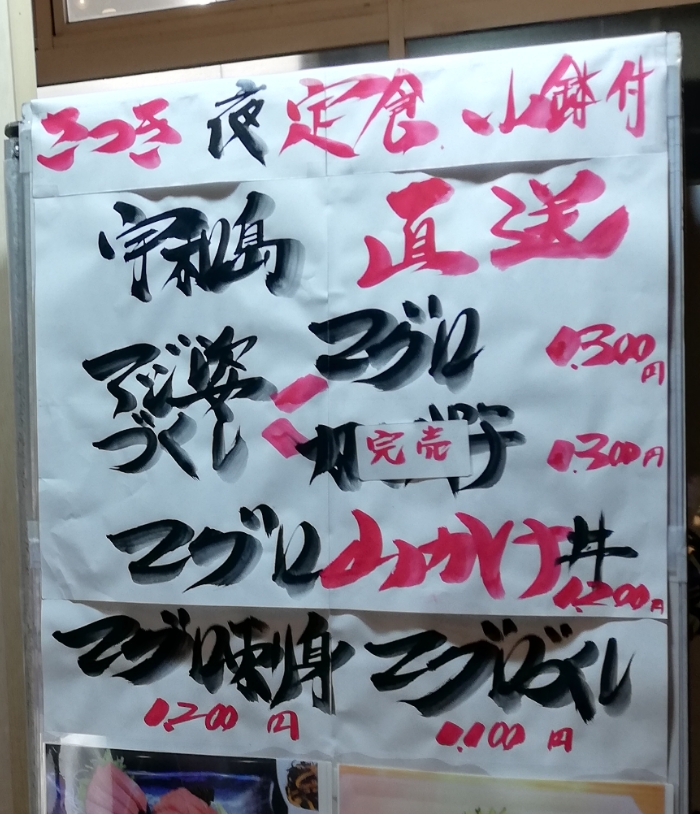 さつき 夜 定食 小鉢付
宇和島 直送
アジ姿 づくし マグロ 1,300円
完売 1,300円
マグロ山かけ丼 1,200円
マグロ刺身 マグロづくし
1,200円 1,100円